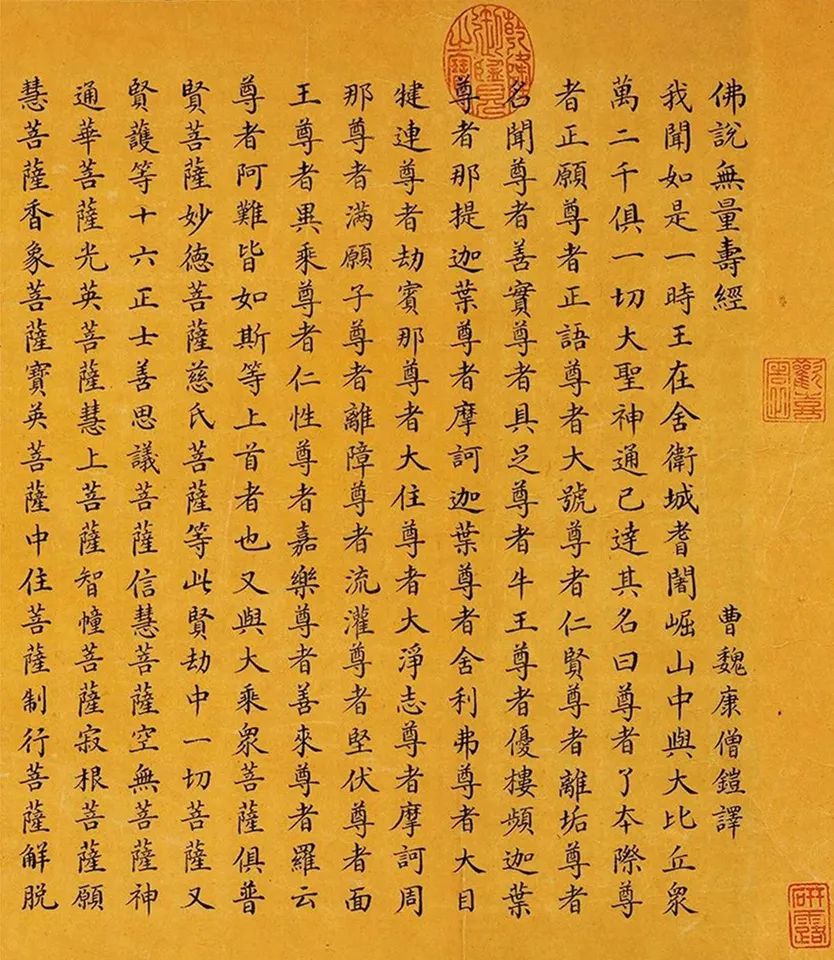 佛說無量壽經 曹魏康僧鎧譯
我聞如是一時王在舍衛城耆闍崛山中與大比丘衆
萬二千俱一切大聖神通已達其名曰尊者了本際尊
者正願尊者正語尊者大號尊者仁賢尊者離垢尊者
名聞尊者善實尊者具足尊者牛王尊者優樓頻迦葉
尊者那提迦葉尊者摩訶迦葉尊者舍利弗尊者大目
犍連尊者劫賓那尊者大住尊者大淨志尊者摩訶周
那尊者满願子尊者離障尊者流灌尊者堅伏尊者面
王尊者異乘尊者仁性尊者嘉樂尊者善來尊者羅云
尊者阿難皆如斯等上首者也又與大乘衆菩薩俱普
賢菩薩妙德菩薩慈氏菩薩等此賢劫中一切菩薩又
賢護等十六正士善思議菩薩信慧菩薩空無菩薩神
通華菩薩光英菩薩慧上菩薩智幢菩薩寂根菩薩願
慧菩薩香象菩薩寶英菩薩中住菩薩制行菩薩解脫
乾隆御覽之寶
研露